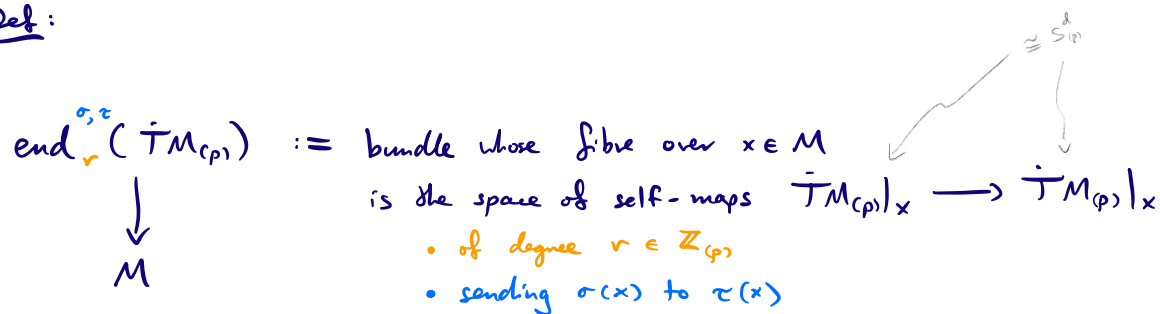 Def :
≃ S^d_(p)
end_r^{σ,τ} ( ṪM_(p) ) := bundle whose fibre over x ∈ M
is the space of self-maps ṪM_(p)|_x ⟶ ṪM_(p)|_x
• of degree r ∈ ℤ_(p)
M
• sending σ(x) to τ(x)